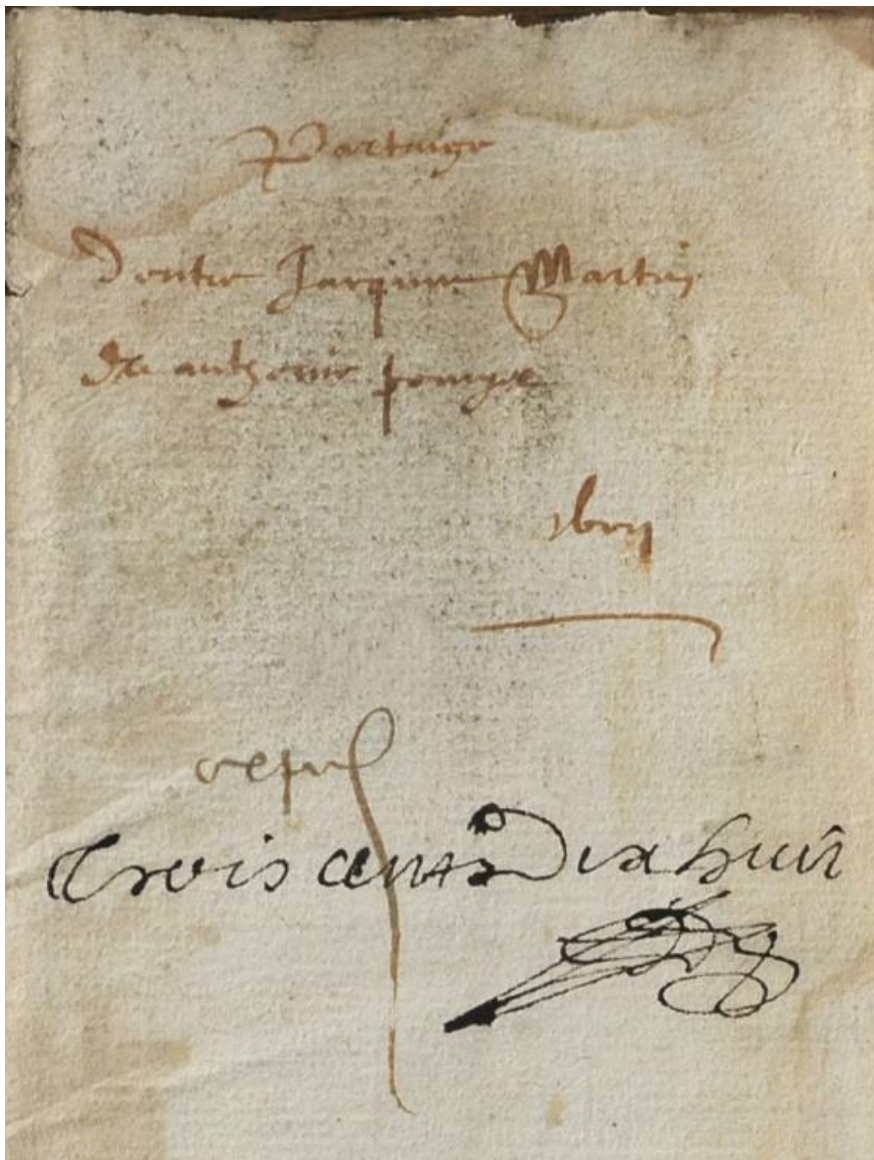 Partaige
D entre Jacques Martin
Et anthoine
xbvij
Trois cents Dix huit